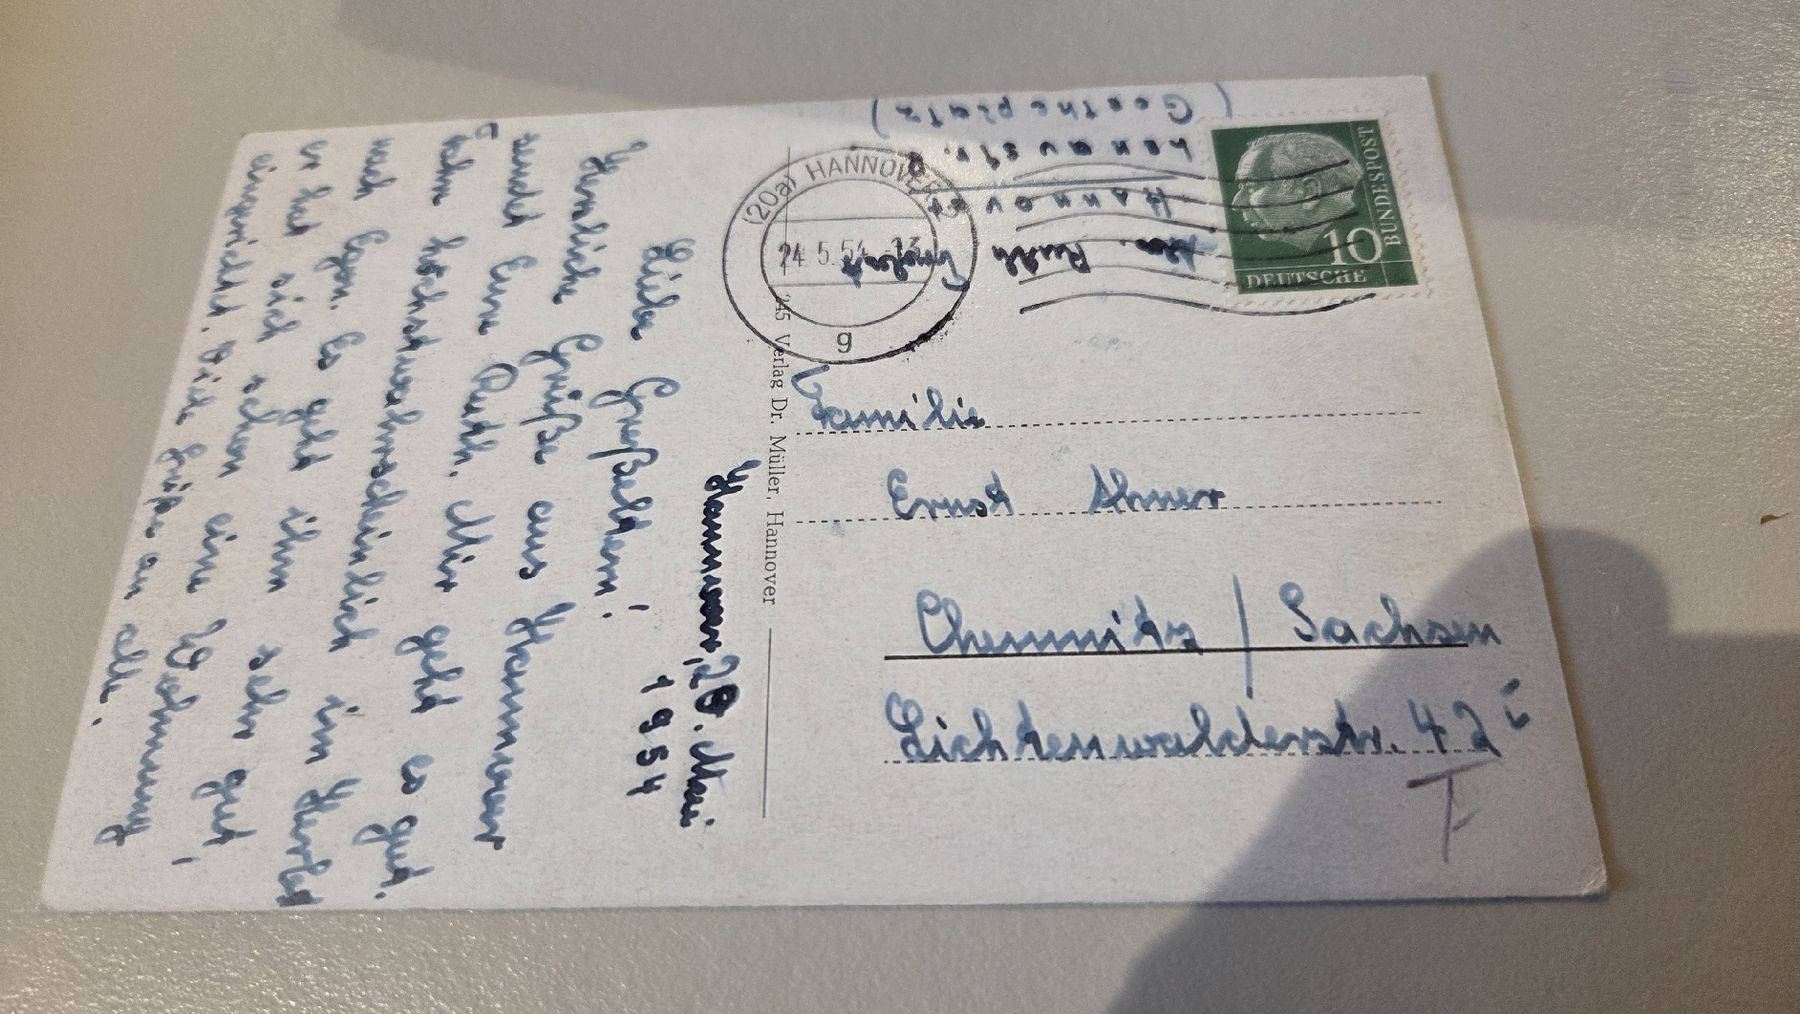 Hannover, 20. Mai
1954
Liebe Großeltern!
Herzliche Grüße aus Hannover
sendet Eure Ruth. Mir geht es gut.
Fahre höchstwahrscheinlich im Herbst
nach Hagen. Es geht ihm sehr gut,
er hat sich schon eine Wohnung
eingerichtet. Viele Grüße an alle.
245 Verlag Dr. Müller, Hannover
(20a) HANNOVER
24.5.54.-13
g
DEUTSCHE
BUNDESPOST
10
Ruth
Hannover
Lenaustr.
(Goetheplatz)
Familie
Ernst Ahner
Chemnitz / Sachsen
Lichtenwalderstr. 42
T